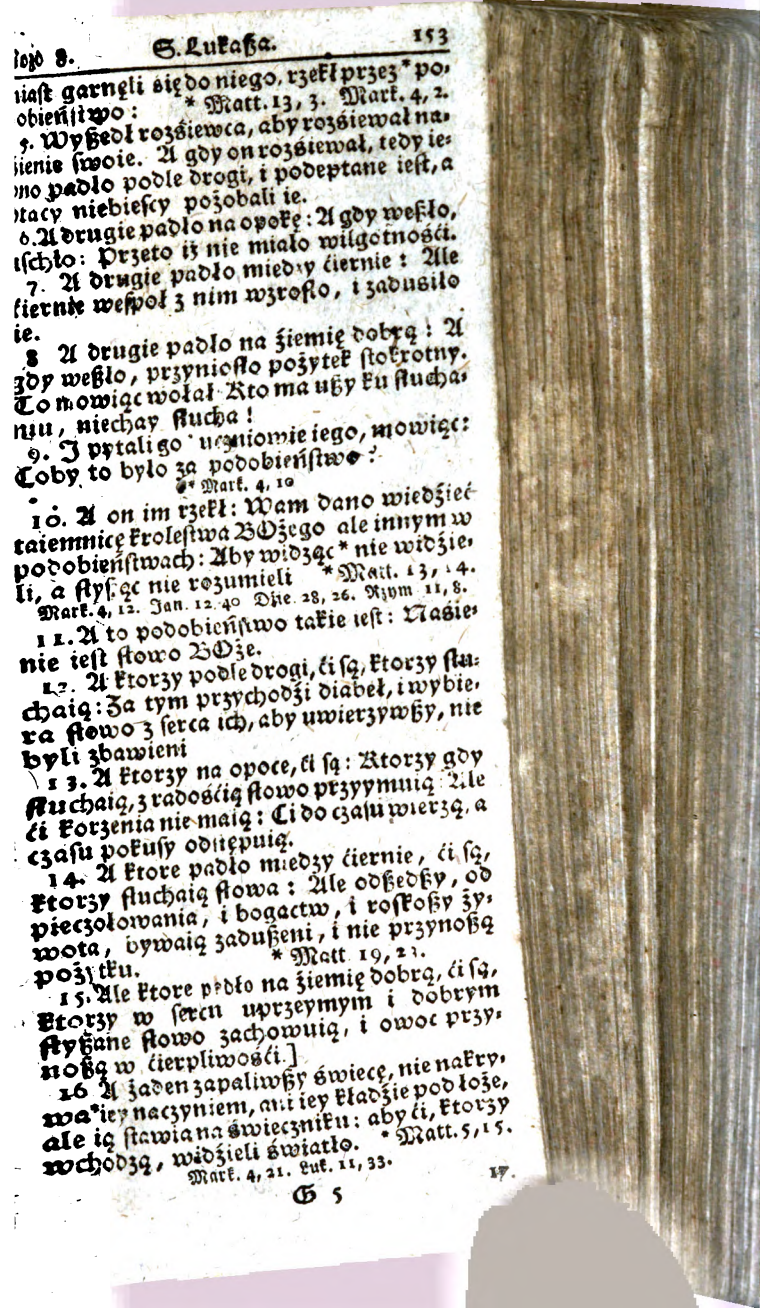 8. S. Lukaßa. 153
garnęli się do niego, rzekł przez * po-
obieństwo: * Matt. 13, 3. Mark. 4, 2.
5. Wyßedł rozsiewca, aby rozśiewał na-
śienie swoie. A gdy on rozśiewał, tedy ie-
dno padło podle drogi, i podeptane iest, a
ptacy niebiescy pozobali ie.
6. A drugie padło na opokę: A gdy weßło,
uschło: Przeto iż nie miało wilgotnośći.
7. A drugie padło między ćiernie: Ale
ćiernie wespoł z nim wzrosło, i zadusiło
ie.
8 A drugie padło na źiemię dobrą: A
gdy weßło, przyniosło pożytek stokrotny.
To mowiąc wołał Kto ma ußy ku słucha-
niu, niechay słucha!
9. I pytali go * uczniowie iego, mowiąc:
Coby to było za podobieństwo?
* Mark. 4, 10
10. A on im rzekł: Wam dano wiedźieć
taiemnicę krolestwa BOżego ale innym w
podobieństwach: Aby widząc * nie widźie-
li, a słysząc nie rozumieli * Matt. 13, 14.
Mark. 4, 12. Jan. 12. 40 Dźie. 28, 26. Rzym 11, 8.
11. A to podobieństwo takie iest: Nasie-
nie iest słowo BOże.
12. A ktorzy podle drogi, ći są, ktorzy słu-
chaią: Za tym przychodźi diabeł, i wybie-
ra słowo z serca ich, aby uwierzywßy, nie
byli zbawieni
13. A ktorzy na opoce, ći są: Ktorzy gdy
słuchaią, z radośćią słowo przyymuią Ale
ći korzenia nie maią: Ci do czasu wierzą, a
czasu pokusy odstępuią.
14. A ktore padło miedzy ćiernie, ći są,
ktorzy słuchaią słowa: Ale odßedßy, od
pieczołowania, i bogactw, i roskoßy ży-
wota, bywaią zadußeni, i nie przynoßą
pożytku. * Matt 19, 23.
15. Ale ktore padło na źiemię dobrą, ći są,
ktorzy w sercu uprzeymym i dobrym
słyßane słowo zachowuią, i owoc przy-
noßą w ćierpliwośći.]
16 A żaden zapaliwßy świecę, nie nakry-
wa * iey naczyniem, ani iey kładźie pod łoże,
ale ią stawia na świeczniku: aby ći, ktorzy
wchodzą, widźieli światło. * Matt. 5, 15.
Mark. 4, 21. Luk. 11, 33.
G 5 17.